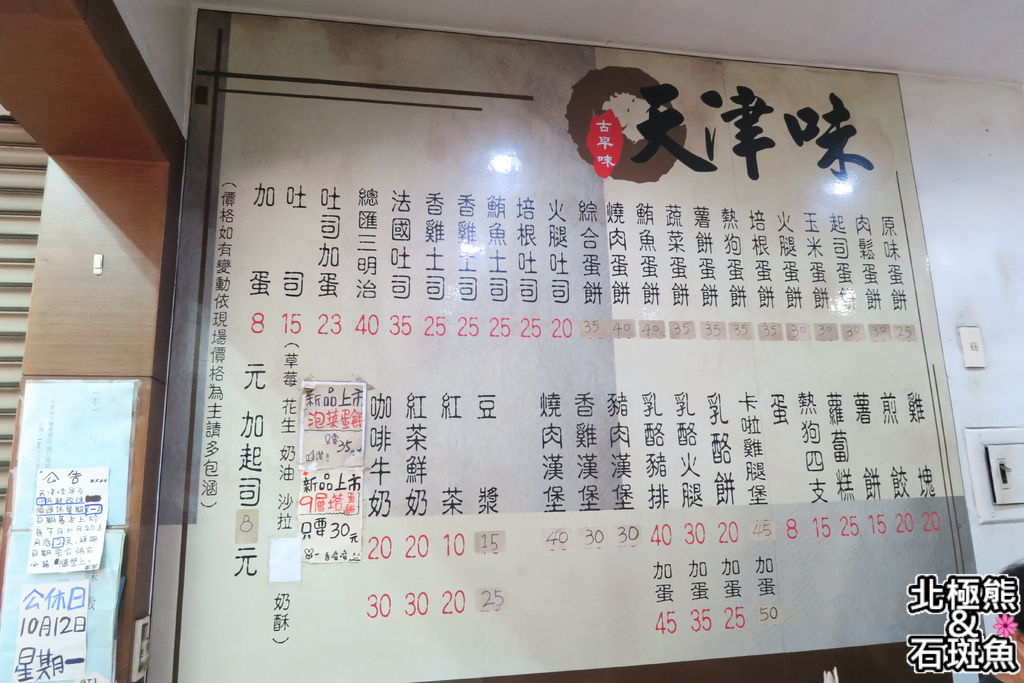 天津味
古早味
原味蛋餅 25
肉鬆蛋餅 30
起司蛋餅 30
玉米蛋餅 30
火腿蛋餅 30
培根蛋餅 35
熱狗蛋餅 35
薯餅蛋餅 35
蔬菜蛋餅 35
鮪魚蛋餅 40
燒肉蛋餅 40
綜合蛋餅 35
火腿吐司 20
培根吐司 25
鮪魚土司 25
香雞土司 25
香雞土司 25
法國吐司 35
總匯三明治 40
吐司加蛋 23
吐司 15 (草莓 花生 奶油 沙拉 奶酥)
加蛋 8元 加起司 8元
(價格如有變動依現場價格為主請多包涵)
雞塊 20
煎餃 20
薯餅 15
蘿蔔糕 25
熱狗四支 15
蛋 8
卡啦雞腿堡 45 加蛋 50
乳酪餅 20 加蛋 25
乳酪火腿 30 加蛋 35
乳酪豬排 40 加蛋 45
豬肉漢堡 30
香雞漢堡 30
燒肉漢堡 40
豆漿 15 25
紅茶 10 20
紅茶鮮奶 20 30
咖啡牛奶 20 30
新品上市
泡菜蛋餅
只要35元
新品上市
9層塔
只要30元
公告
公休日
10月12日
星期一
北極熊
&
石斑魚